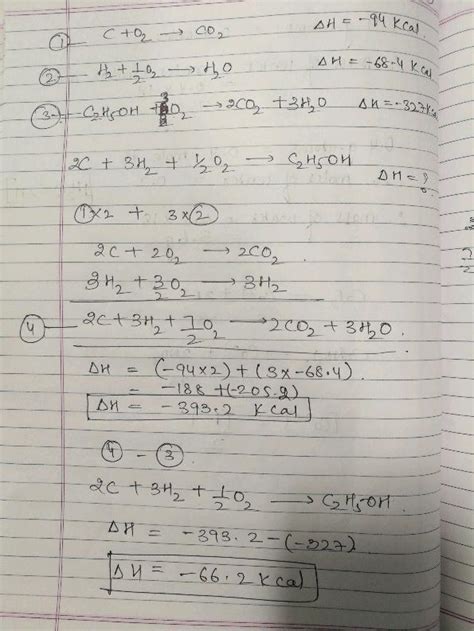 ① C + O₂ → CO₂ ΔH = -94 KCal.
② H₂ + 1/2 O₂ → H₂O ΔH = -68.4 KCal
③ C₂H₅OH + O₂ → 2CO₂ + 3H₂O ΔH = -327 KCal
2C + 3H₂ + 1/2 O₂ → C₂H₅OH ΔH = ?
① × 2 + 3 × ②
2C + 2O₂ → 2CO₂
3H₂ + 3/2 O₂ → 3H₂
④ 2C + 3H₂ + 7/2 O₂ → 2CO₂ + 3H₂O.
ΔH = (-94×2) + (3×-68.4)
= -188 + (-205.2)
ΔH = -393.2 KCal
④ - ③
2C + 3H₂ + 1/2 O₂ → C₂H₅OH.
ΔH = -393.2 - (-327)
ΔH = -66.2 KCal